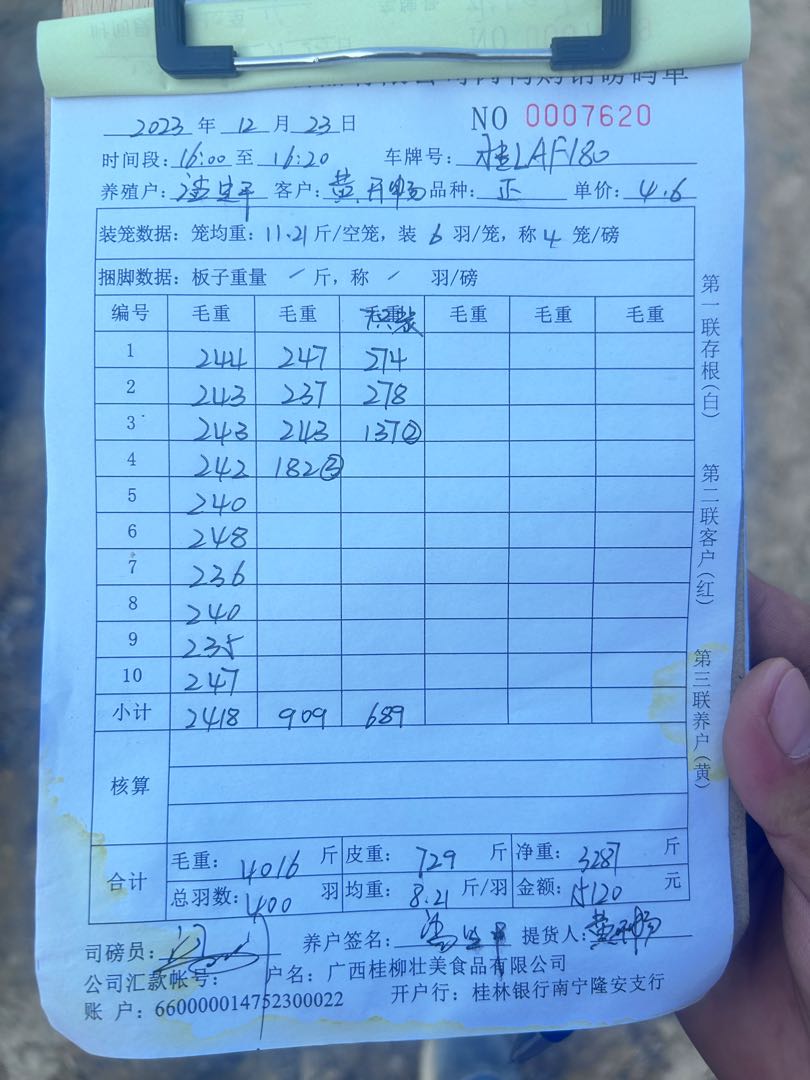 NO 0007620
2023 年 12 月 23 日
时间段: 16:00 至 16:20 车牌号: 桂LAF180
养殖户: 客户: 黄开畅 品种: 正 单价: 4.6
装笼数据: 笼均重: 11.21 斤/空笼, 装 6 羽/笼, 称 4 笼/磅
捆脚数据: 板子重量 / 斤, 称 / 羽/磅
编号 毛重 毛重 毛重 毛重 毛重 毛重
1 244 247 274
2 243 237 278
3 243 243 137②
4 242 182③
5 240
6 248
7 236
8 240
9 235
10 247
小计 2418 909 689
核算
合计
毛重: 4016 斤 皮重: 729 斤 净重: 3287 斤
总羽数: 400 羽 均重: 8.21 斤/羽 金额: 15120 元
司磅员: 养户签名: 提货人: 黄开畅
公司汇款帐号: 户名: 广西桂柳壮美食品有限公司
账 户: 660000014752300022 开户行: 桂林银行南宁隆安支行
第一联存根(白)
第二联客户(红)
第三联养户(黄)